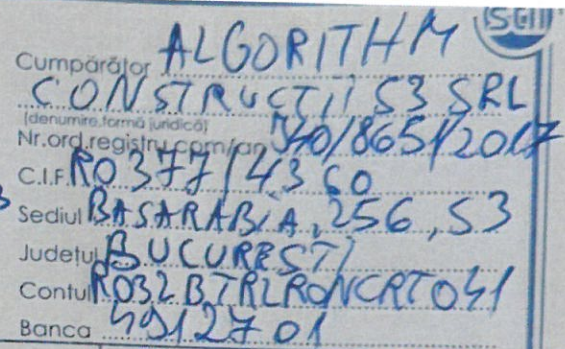 SGII
Cumpărător ALGORITHM
CONSTRUCTII S3 SRL
(denumire, formă juridică)
Nr.ord.registru com/an J40/8651/2017
C.I.F. RO 37714360
Sediul BASARABIA, 256, S3
Județul BUCUREȘTI
Contul RO32BTRLRONCRT041
Banca 4912701